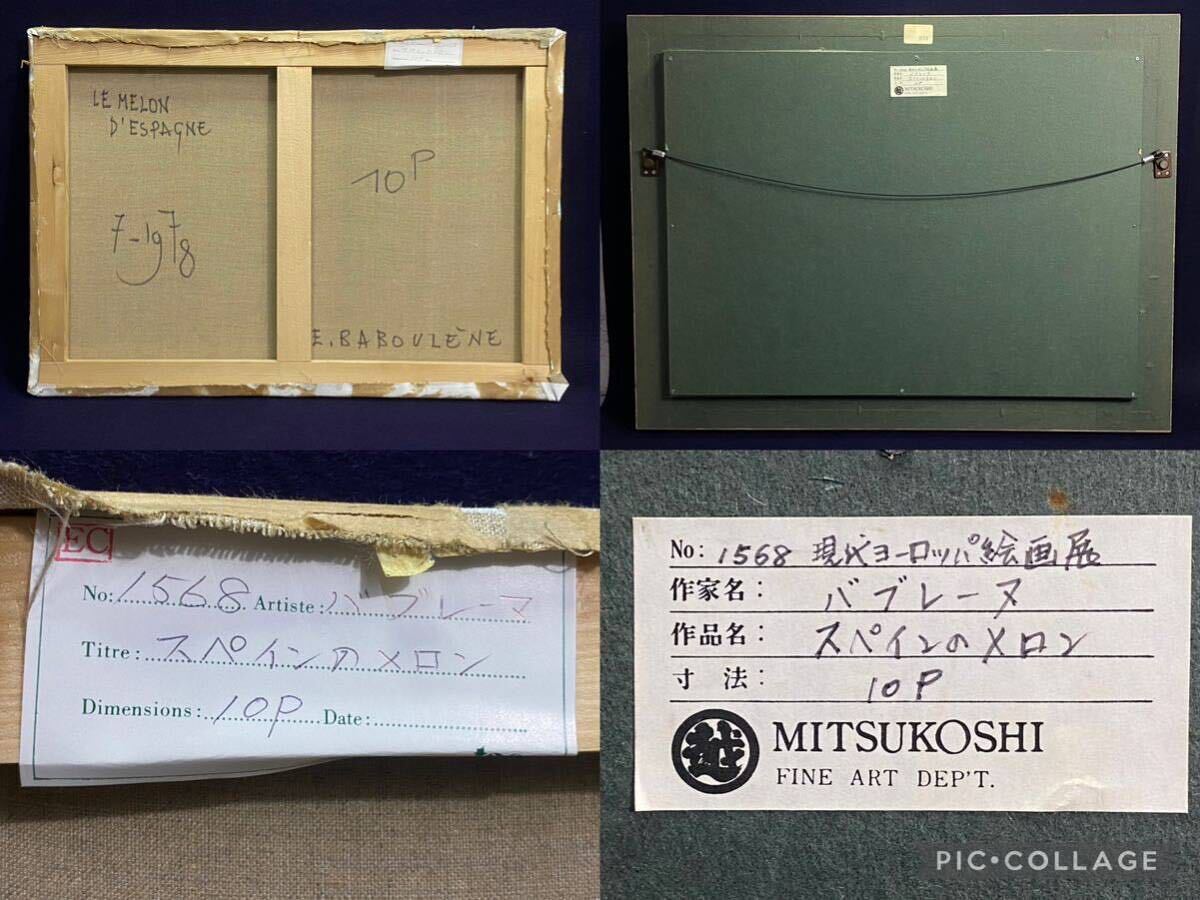 LE MELON
D'ESPAGNE
7-1978
10P
E. BABOULÈNE
MITSUKOSHI
EC
No: 1568 Artiste: バブレーヌ
Titre: スペインのメロン
Dimensions: 10P Date:
No: 1568 現代ヨーロッパ絵画展
作家名: バブレーヌ
作品名: スペインのメロン
寸法: 10P
越 MITSUKOSHI
FINE ART DEP'T.
PIC•COLLAGE